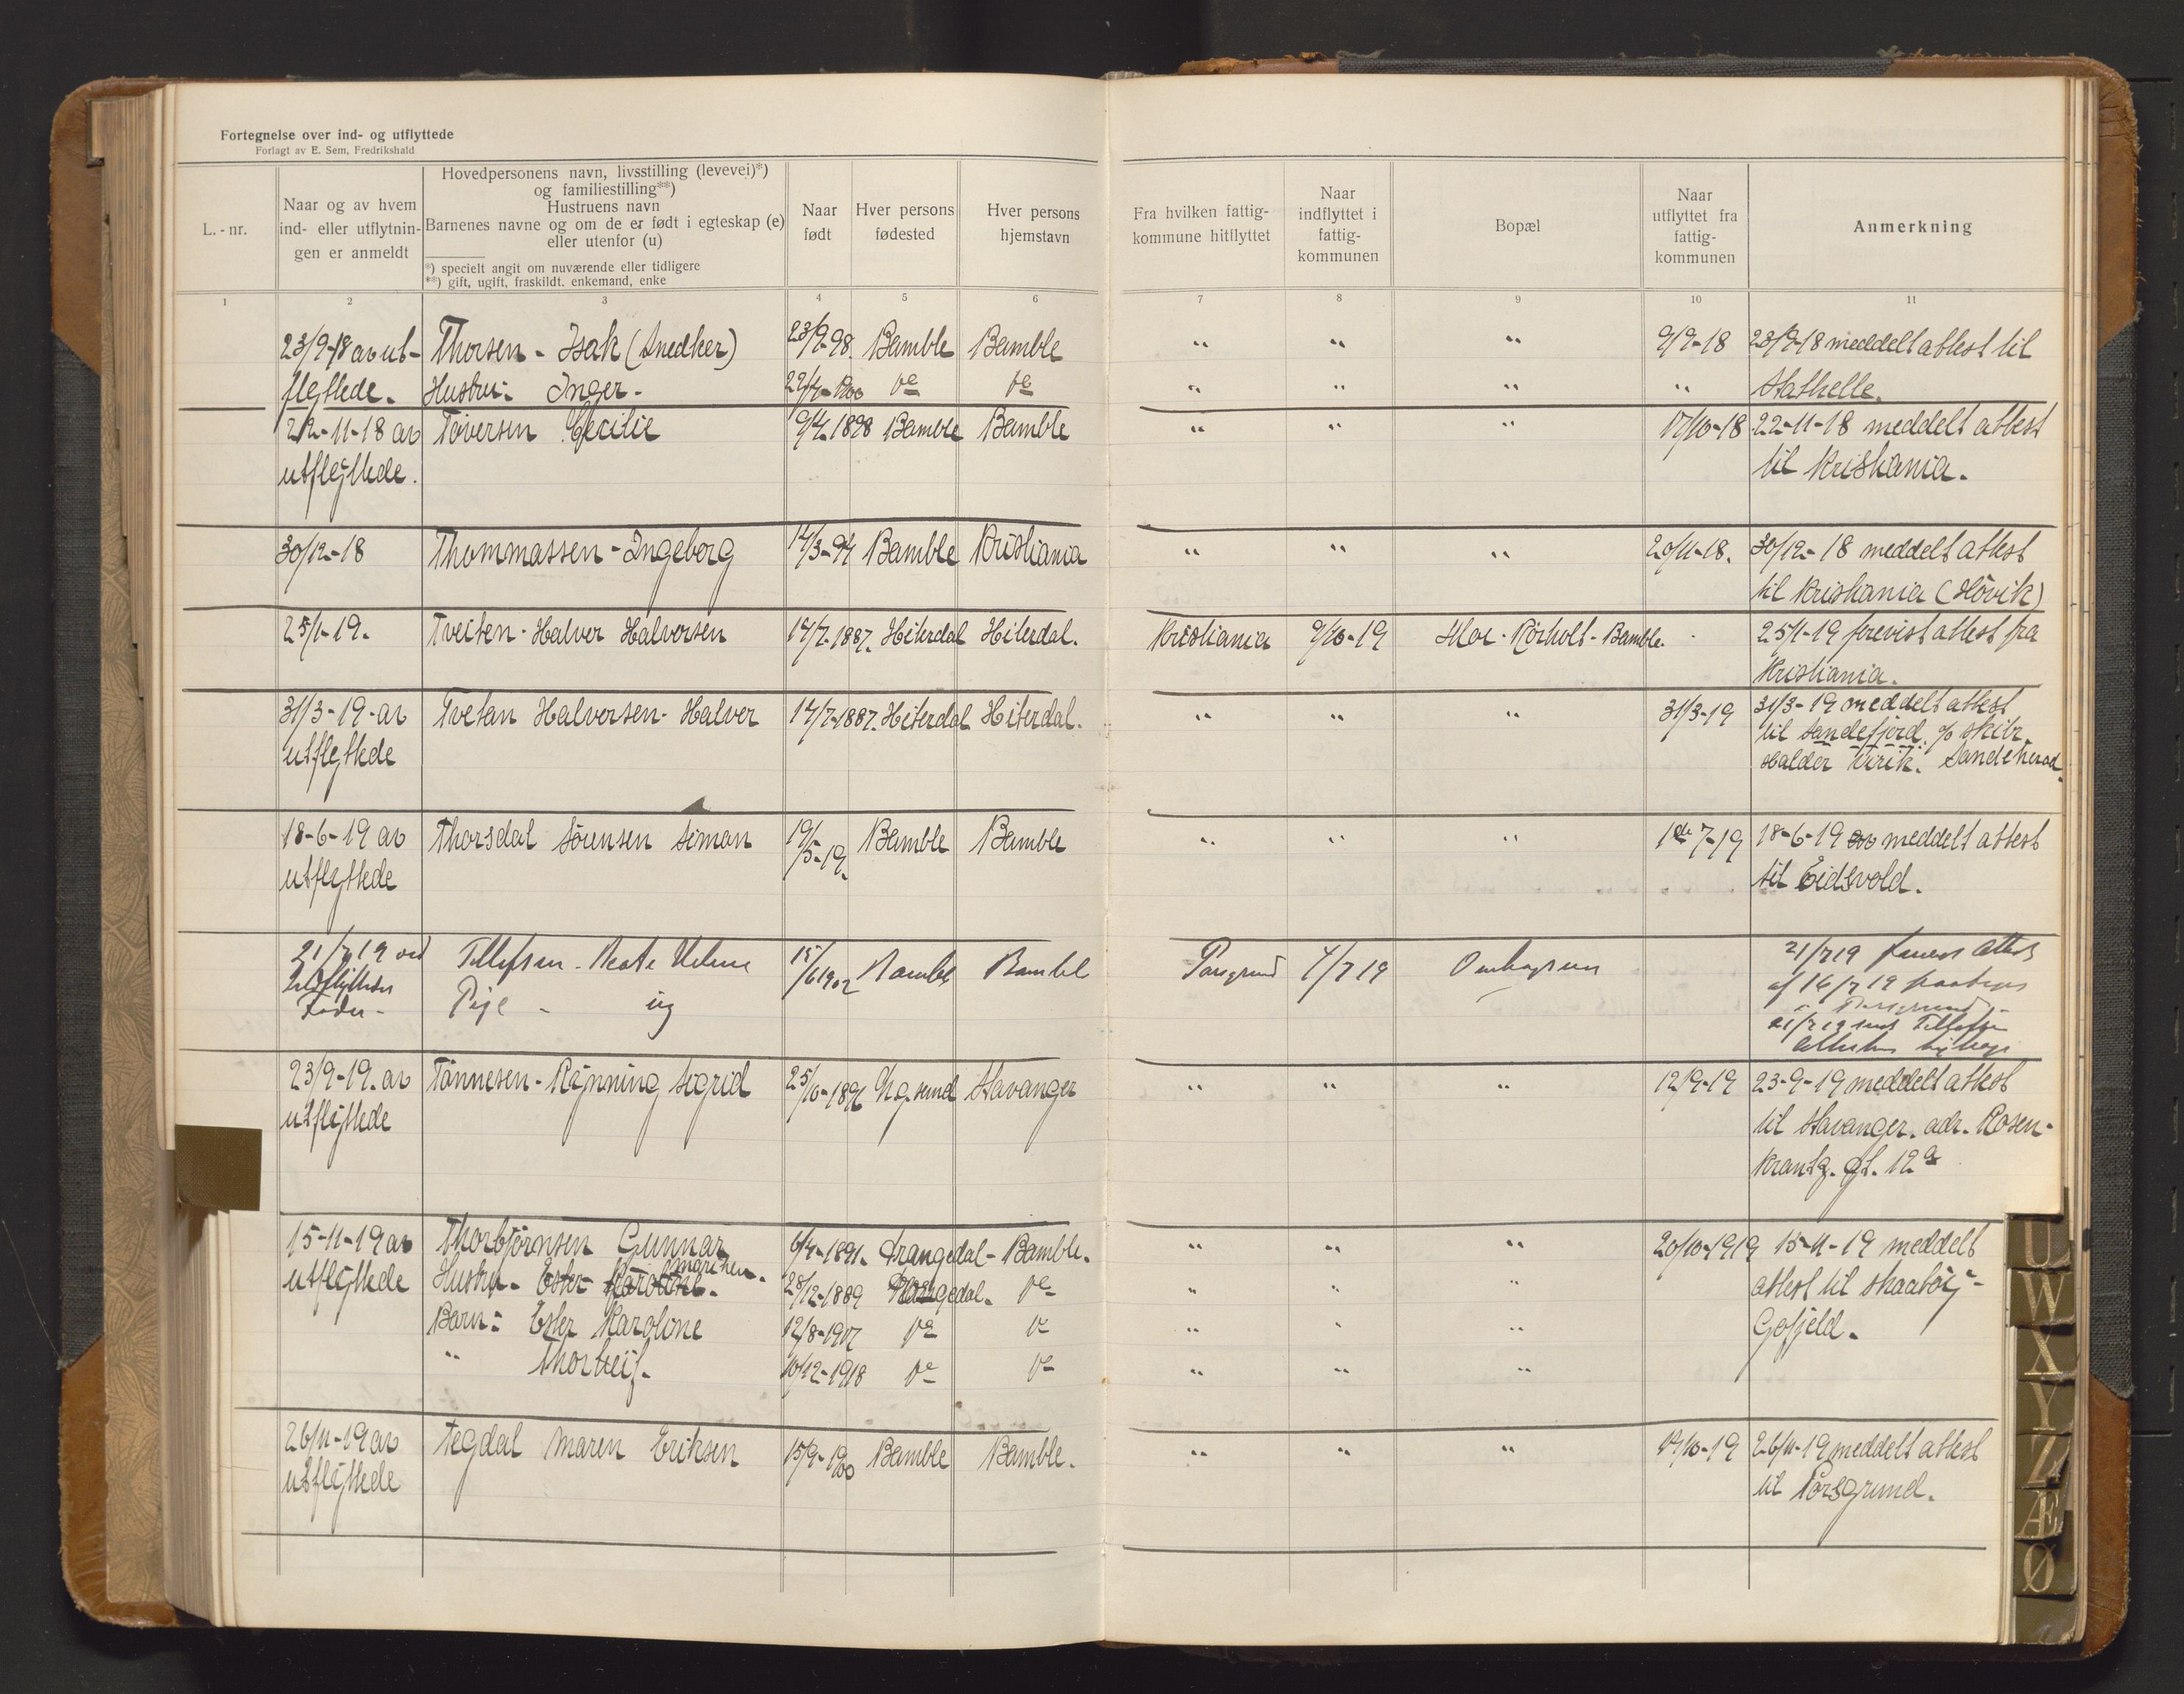 Fortegnelse over ind- og utflyttede
Forlagt av E. Sem, Fredrikshald
L.-nr.
Naar og av hvem
ind- eller utflytnin-
gen er anmeldt
Hovedpersonens navn, livsstilling (levevei)*)
og familiestilling**)
Hustruens navn
Barnenes navne og om de er født i egteskap (e)
eller utenfor (u)
*) specielt angit om nuværende eller tidligere
**) gift, ugift, fraskildt. enkemand, enke
Naar
født
Hver persons
fødested
Hver persons
hjemstavn
Fra hvilken fattig-
kommune hitflyttet
Naar
indflyttet i
fattig-
kommunen
Bopæl
Naar
utflyttet fra
fattig-
kommunen
Anmerkning
1 2 3 4 5 6 7 8 9 10 11
23/9-18 av ut- Thorsen - Isak (Snedker) 23/9-98. Bamble Bamble " " " 9/9-18 23/9-18 meddelt attest til
flyttede. Hustru: Inger - do do " " " " Stathelle.
22-11-18 av Töversen Cecilie 9/4-1898 Bamble Bamble " " " 17/10-18 22-11-18 meddelt attest
utflyttede. til Kristiania.
30/12-18 Thommassen - Ingeborg 14/3-94 Bamble Kristiania " " " 20/11-18. 30/12-18 meddelt attest
til Kristiania (Hövik)
25/1-19. Tveiten - Halver Halvorsen 14/7-1887. Hiterdal Hiterdal. Kristiania 9/10-19 Rörholt - Bamble. 25/1-19 forevist attest fra
Kristiania.
31/3-19 - av Tvetan Halversen - Halver 14/7-1887. Hiterdal Hiterdal. " " " 31/3-19 31/3-19 meddelt attest
utflyttede til Sandefjord. c/o skibr.
Halder Virik. Sandeherad.
18-6-19 av Thorsdal Sörensen Simon 19/5-19. Bamble Bamble " " " 1de 7-19 18-6-19 meddelt attest
utflyttede til Eidsvold.
21/7 19 ved Tellefsen - Beate Helene 15/6 1902 Bamble Bamble Porsgrund 4/7 19 21/7 19 attest
Fader - Pige - ug af 16/7 19
Porsgrund
21/7 19 Tellefsen
23/9-19. av Tönnesen - Rÿnning Sigrid 25/10-1896 Stavanger " " " 12/9-19 23-9-19 meddelt attest
utflyttede til Stavanger. adr. Rosen-
krantz. gt. 12 a
15-11-19 av Thorbjörnsen Gunnar 6/4-1891. Drangedal - Bamble. " " " 20/10-1919 15-11-19 meddelt
utflyttede Hustru - Ester Marthea. 28/12-1889 do " " " attest til Skaatöÿ -
Barn: Ester Karoline 12/8-1917 do do " " " Gofjeld.
" Thorleif. 10/12-1918 do do " " "
26/11-19 av Tegdal Maren Eriksen 15/9-1900 Bamble Bamble. " " " 14/10-19 26/11-19 meddelt attest
utflyttede til Porsgrund.
U
W
X
Y
Z
Æ
Ø